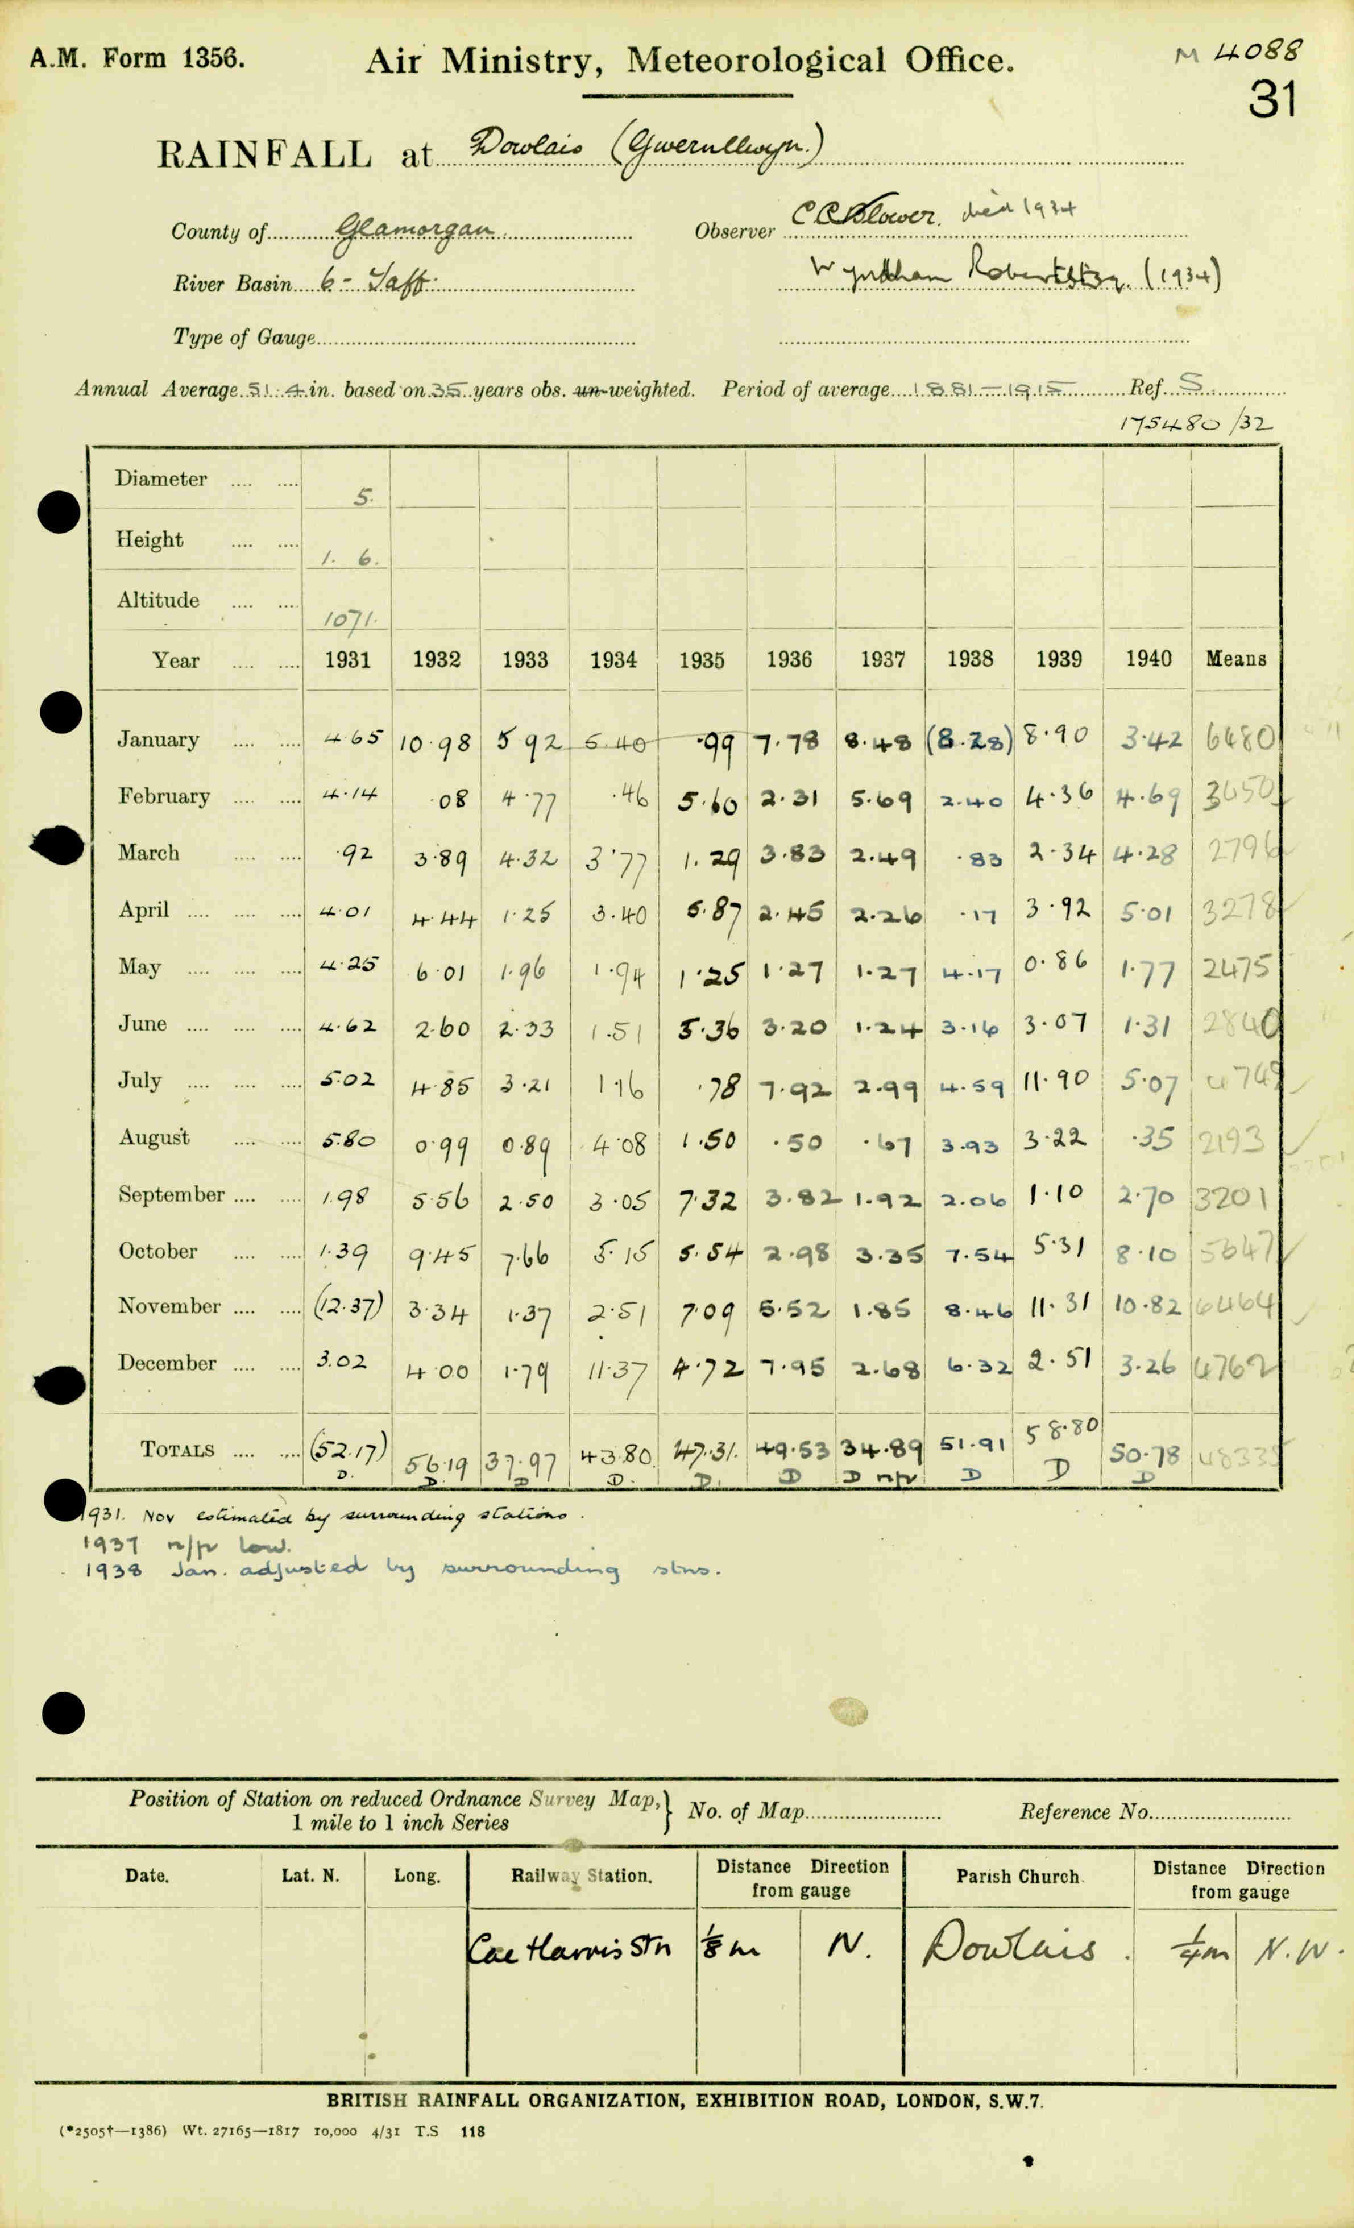 A.M. Form 1356. Air Ministry, Meteorological Office. M 4088
31
RAINFALL at Dowlais (Gwernllwyn.)
County of Glamorgan Observer C C Blower. died 1934
River Basin 6 - Taff. Wyndham (1934)
Type of Gauge
Annual Average 51.4 in. based on 35 years obs. un-weighted. Period of average 1881-1915 Ref. S.
175480/32
Diameter 5.
Height 1. 6.
Altitude 1071.
Year 1931 1932 1933 1934 1935 1936 1937 1938 1939 1940 Means
January 4.65 10.98 5.92 5.40 .99 7.78 8.48 (8.28) 8.90 3.42 6480
February 4.14 .08 4.77 .46 5.60 2.31 5.69 2.40 4.36 4.69 3450
March .92 3.89 4.32 3.77 1.29 3.83 2.49 .83 2.34 4.28 2796
April 4.01 4.44 1.25 3.40 5.87 2.45 2.26 .17 3.92 5.01 3278
May 4.25 6.01 1.96 1.94 1.25 1.27 1.27 4.17 0.86 1.77 2475
June 4.62 2.60 2.33 1.51 5.36 3.20 1.24 3.16 3.07 1.31 2840
July 5.02 4.85 3.21 1.16 .78 7.92 2.99 4.59 11.90 5.07 4749
August 5.80 0.99 0.89 4.08 1.50 .50 .67 3.93 3.22 .35 2193
September 1.98 5.56 2.50 3.05 7.32 3.82 1.92 2.06 1.10 2.70 3201
October 1.39 9.45 7.66 5.15 5.54 2.98 3.35 7.54 5.31 8.10 5647
November (12.37) 3.34 1.37 2.51 7.09 5.52 1.85 8.46 11.31 10.82 6464
December 3.02 4.00 1.79 11.37 4.72 7.95 2.68 6.32 2.51 3.26 4762
TOTALS (52.17) 56.19 37.97 43.80 47.31 49.53 34.89 51.91 58.80 50.78 48335
D. D. D D. D. D D n/r D D D
1931. Nov estimated by surrounding stations.
1937 n/r low.
1938 Jan. adjusted by surrounding stns.
Position of Station on reduced Ordnance Survey Map, 1 mile to 1 inch Series } No. of Map Reference No.
Date. Lat. N. Long. Railway Station. Distance Direction from gauge Parish Church. Distance Direction from gauge
Cae Harris Stn 1/8 m N. Dowlais. 1/4 m N.W.
BRITISH RAINFALL ORGANIZATION, EXHIBITION ROAD, LONDON, S.W.7.
(*2505†—1386) Wt. 27165—1817 10,000 4/31 T.S 118